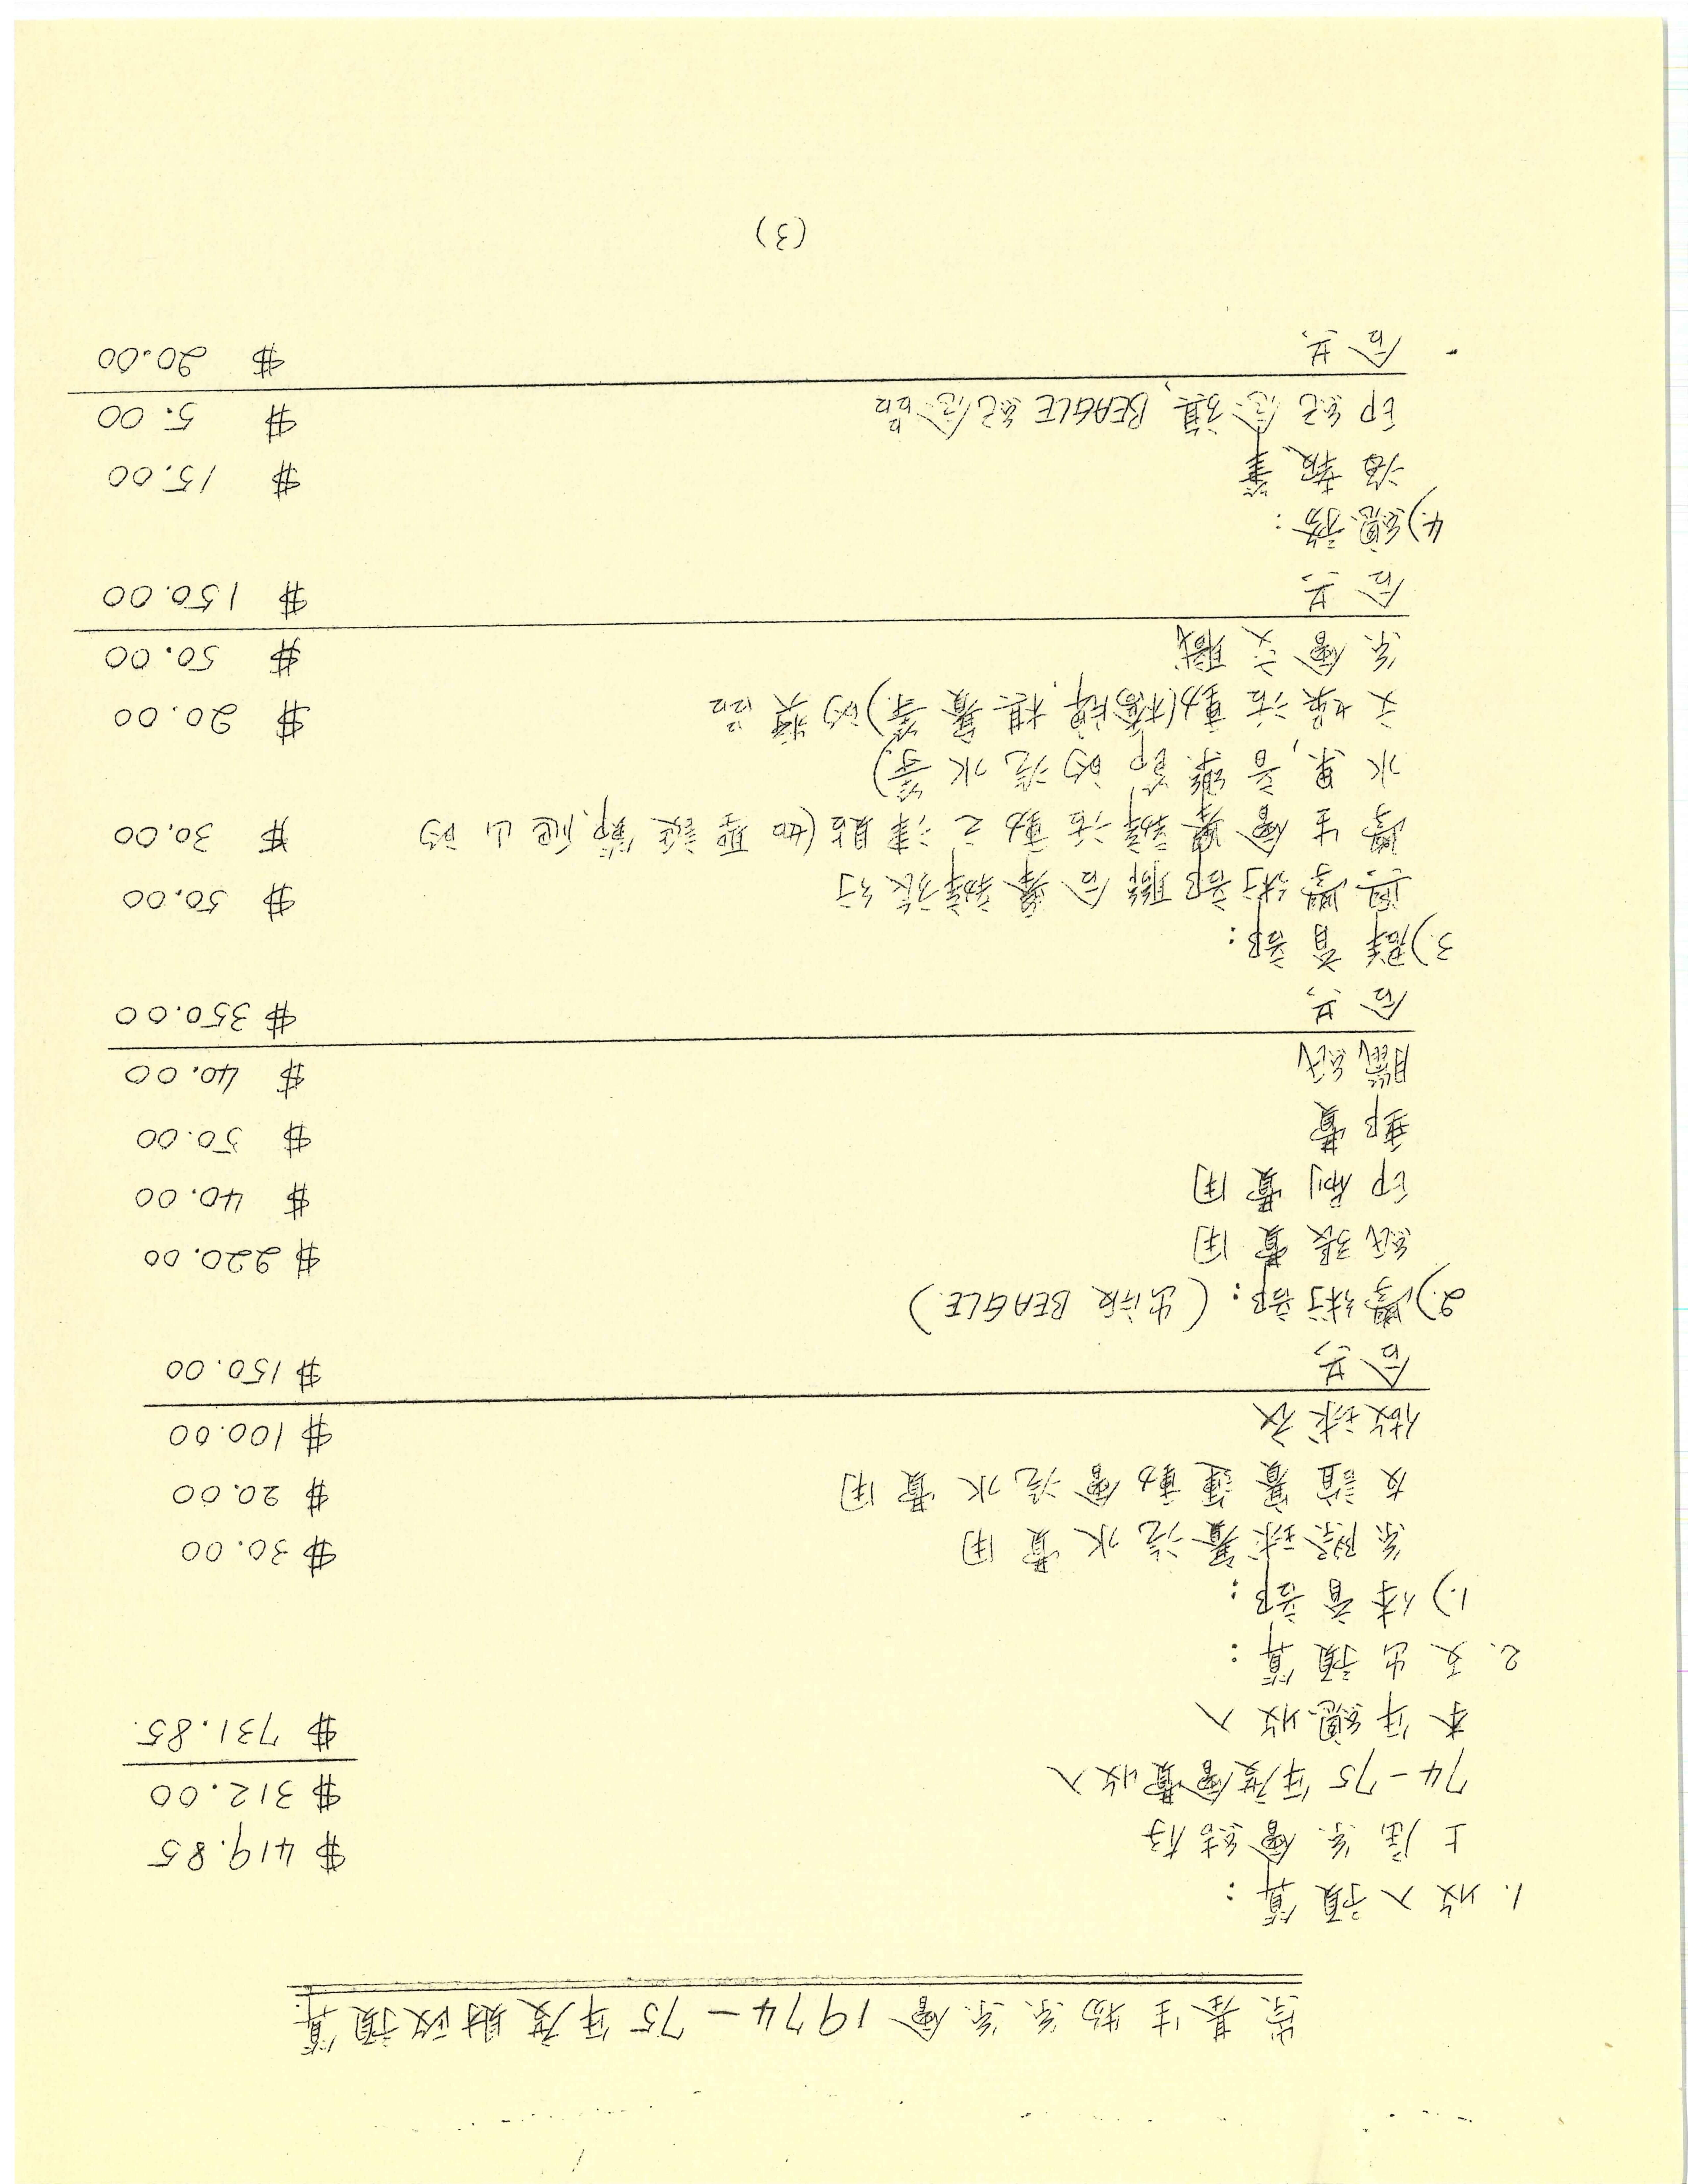 崇基生物系系會1974－75年度財政預算
1. 收入預算：
上屆系會結存 $ 419.85
74－75年度會費收入 $ 312.00
本年總收入 $ 731.85
2. 支出預算：
1.) 体育部：
系際球賽汽水費用 $ 30.00
友誼賽運動會汽水費用 $ 20.00
做球衣 $ 100.00
合共 $ 150.00
2.) 學術部：(出版 BEAGLE)
紙張費用 $ 220.00
印刷費用 $ 40.00
郵費 $ 50.00
臘紙 $ 40.00
合共 $ 350.00
3.) 群育部：
與學術部聯合舉辦旅行 $ 50.00
學生會舉辦活動之津貼(如聖誕節,爬山的 $ 30.00
水果,音樂節的汽水等)
文娛活動(橋牌,棋賽等)的獎品 $ 20.00
系會文職 $ 50.00
合共 $ 150.00
4.) 總務：
報,筆 $ 15.00
印紀念旗, BEAGLE 紀念品 $ 5.00
合共 $ 20.00
(3)